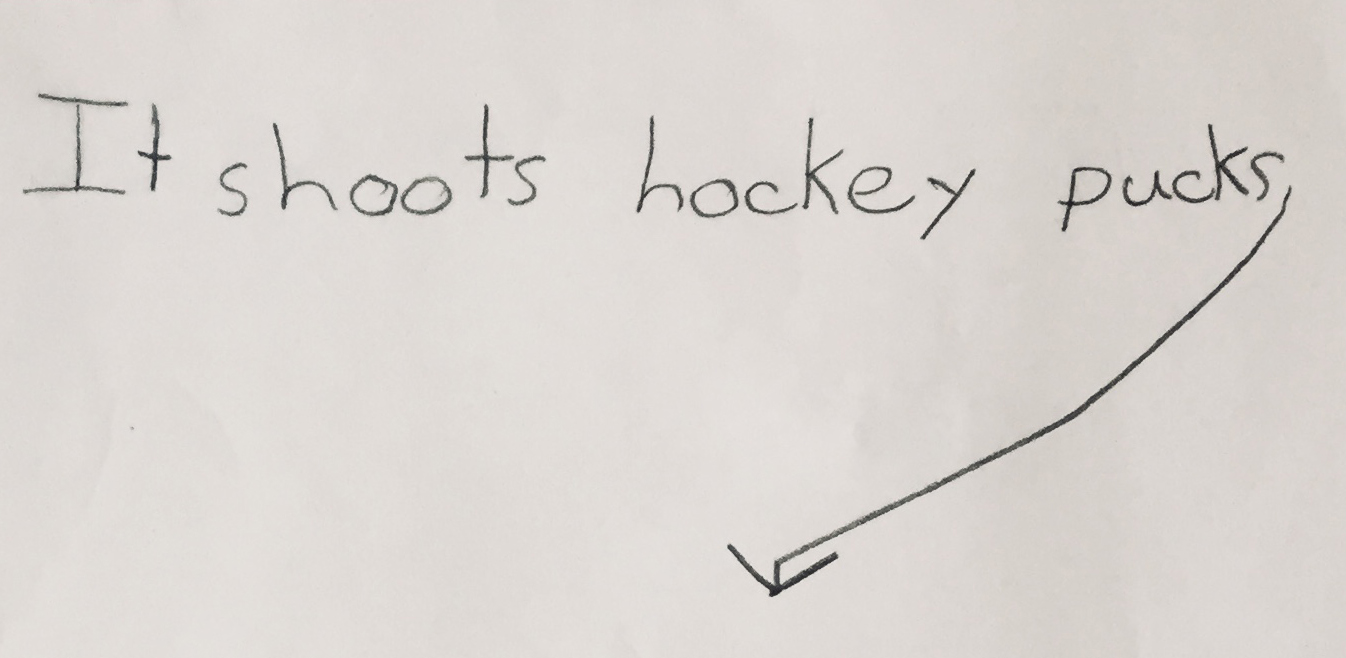 It shoots hockey pucks